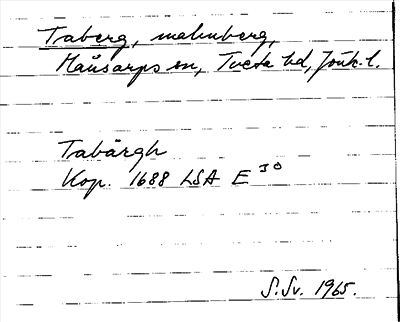 Taberg, malmberg,
Månsarps sn, Tveta hd, Jönk. l.
Tabärgh
Kop. 1688 LSA E 30
S.Sv. 1965.